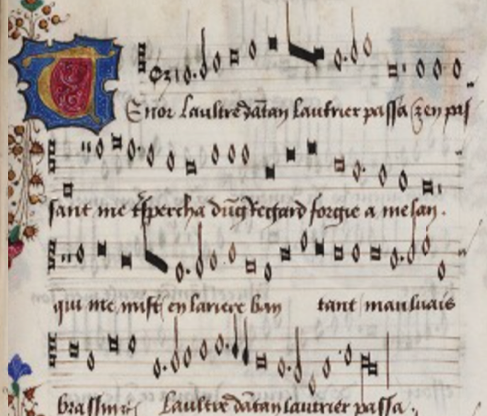 Tenor Laultre dãtan lautrier passa & en pas
sant me t̃spercha dũg Regard forgie a melan.
qui me mist en lariere ban tant maulvais
brassin Laultre dãtan lautrier passa.